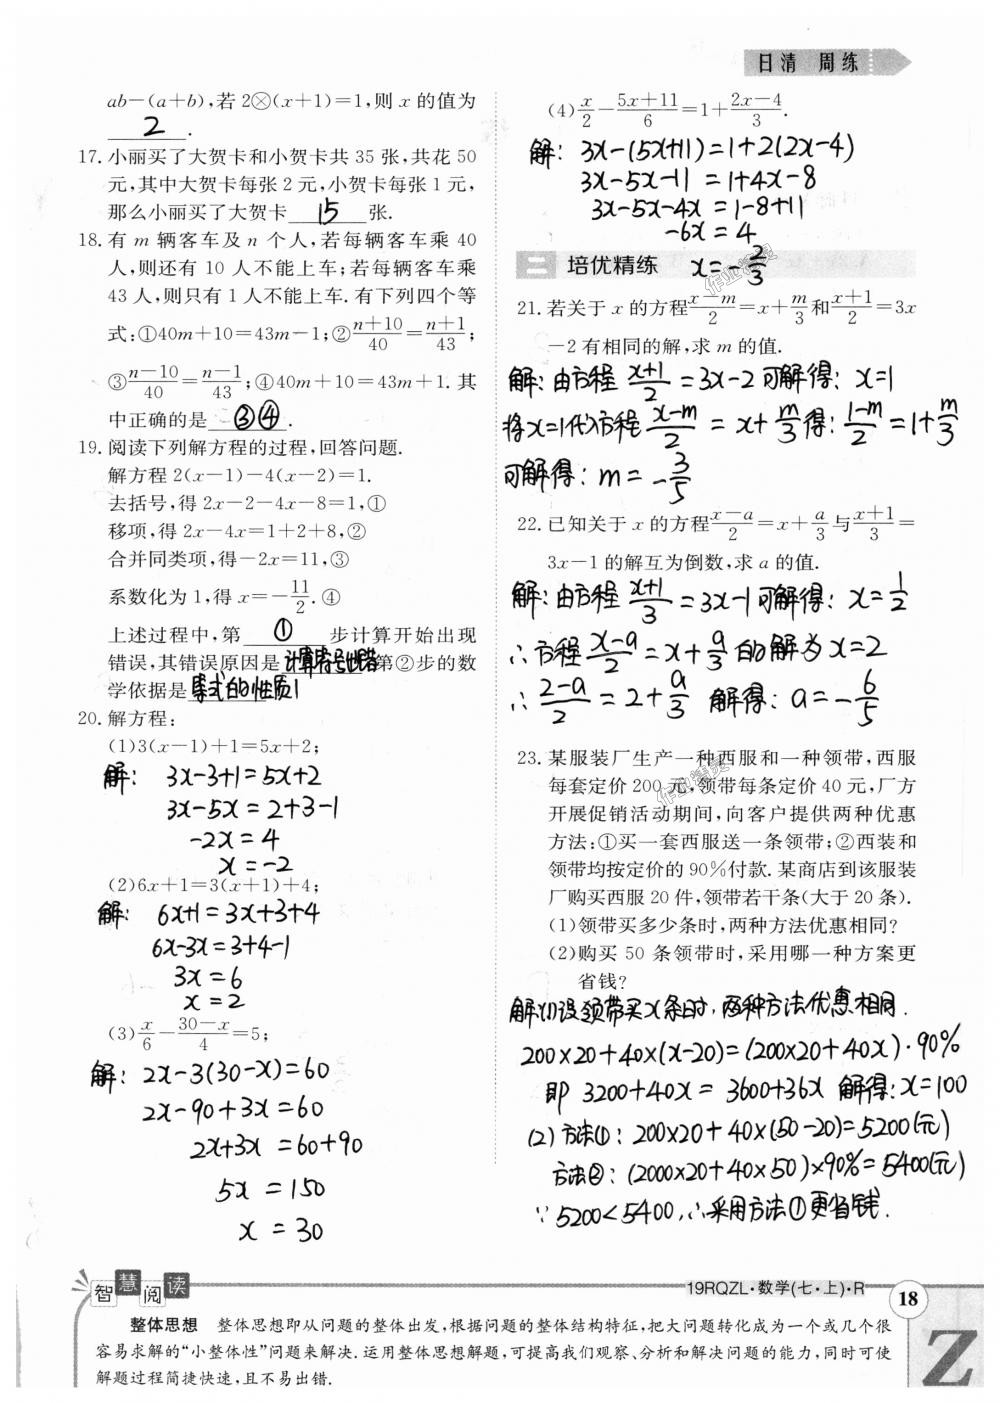 日清 周练
ab-(a+b),若 2⊗(x+1)=1,则 x 的值为
2.
17. 小丽买了大贺卡和小贺卡共 35 张,共花 50
元,其中大贺卡每张 2 元,小贺卡每张 1 元,
那么小丽买了大贺卡 15 张.
18. 有 m 辆客车及 n 个人,若每辆客车乘 40
人,则还有 10 人不能上车;若每辆客车乘
43 人,则只有 1 人不能上车. 有下列四个等
式:①40m+10=43m-1;②\frac{n+10}{40}=\frac{n+1}{43};
③\frac{n-10}{40}=\frac{n-1}{43};④40m+10=43m+1. 其
中正确的是 ③④.
19. 阅读下列解方程的过程,回答问题.
解方程 2(x-1)-4(x-2)=1.
去括号,得 2x-2-4x-8=1,①
移项,得 2x-4x=1+2+8,②
合并同类项,得-2x=11,③
系数化为 1,得 x=-\frac{11}{2}.④
上述过程中,第 ① 步计算开始出现
错误,其错误原因是 计算符号出错 第②步的数
学依据是 等式的性质1
20. 解方程:
(1)3(x-1)+1=5x+2;
解: 3x-3+1=5x+2
3x-5x=2+3-1
-2x=4
x=-2
(2)6x+1=3(x+1)+4;
解: 6x+1=3x+3+4
6x-3x=3+4-1
3x=6
x=2
(3)\frac{x}{6}-\frac{30-x}{4}=5;
解: 2x-3(30-x)=60
2x-90+3x=60
2x+3x=60+90
5x=150
x=30
(4)\frac{x}{2}-\frac{5x+11}{6}=1+\frac{2x-4}{3}.
解: 3x-(5x+11)=1+2(2x-4)
3x-5x-11=1+4x-8
3x-5x-4x=1-8+11
-6x=4
x=-\frac{2}{3}
二 培优精练
21. 若关于 x 的方程\frac{x-m}{2}=x+\frac{m}{3}和\frac{x+1}{2}=3x
-2 有相同的解,求 m 的值.
解:由方程\frac{x+1}{2}=3x-2可解得: x=1
将x=1代入方程\frac{x-m}{2}=x+\frac{m}{3}得:\frac{1-m}{2}=1+\frac{m}{3}
可解得: m=-\frac{3}{5}
22. 已知关于 x 的方程\frac{x-a}{2}=x+\frac{a}{3}与\frac{x+1}{3}=
3x-1 的解互为倒数,求 a 的值.
解:由方程\frac{x+1}{3}=3x-1可解得: x=\frac{1}{2}
∴方程\frac{x-a}{2}=x+\frac{a}{3}的解为x=2
∴\frac{2-a}{2}=2+\frac{a}{3} 解得: a=-\frac{6}{5}
23. 某服装厂生产一种西服和一种领带,西服
每套定价 200 元,领带每条定价 40 元,厂方
开展促销活动期间,向客户提供两种优惠
方法:①买一套西服送一条领带;②西装和
领带均按定价的 90%付款. 某商店到该服装
厂购买西服 20 件,领带若干条(大于 20 条).
(1)领带买多少条时,两种方法优惠相同?
(2)购买 50 条领带时,采用哪一种方案更
省钱?
解(1)设领带买x条时,两种方法优惠相同.
200×20+40×(x-20)=(200×20+40x)·90%
即 3200+40x=3600+36x 解得:x=100
(2)方法①:200×20+40×(50-20)=5200(元)
方法②:(2000×20+40×50)×90%=5400(元)
∵5200<5400,∴采用方法①更省钱.
作业精灵
作业精灵
智慧阅读
19RQZL·数学(七·上)·R
18
整体思想 整体思想即从问题的整体出发,根据问题的整体结构特征,把大问题转化成为一个或几个很
容易求解的“小整体性”问题来解决. 运用整体思想解题,可提高我们观察、分析和解决问题的能力,同时可使
解题过程简捷快速,且不易出错.
Z